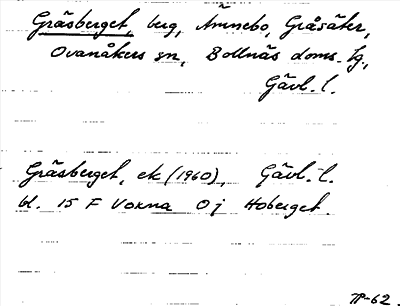 Gräsberget, berg, Ämnebo, Gråsäter,
Ovanåkers sn, Bollnäs doms. lg.,
Gävl. l.
Gräsberget, ek (1960), Gävl. l.
bl. 15 F Voxna 0 j Hoberget.
-62.